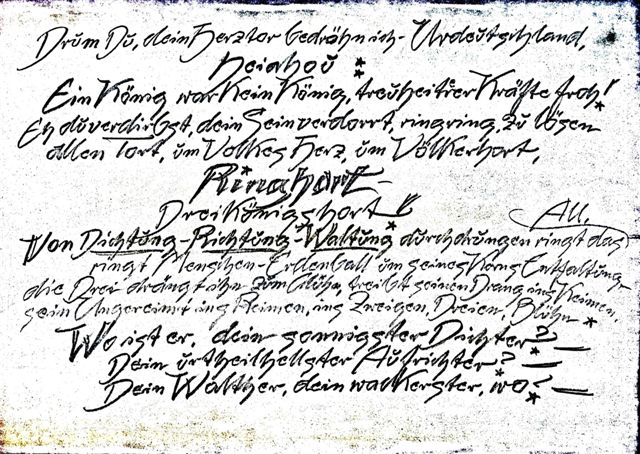 Drum Du, dein Herztor bedröhn ich - Urdeutschland,
Heiahou
Ein König war kein König, treuheiterer Kräfte froh!
Eh du verdirbst, dein Sein verdorrt, ring ring, zu lösen
allen Tort, um Volkes Herz, um Völkerhort,
Ringhort -
Dreikönigshort!
All.
Von Dichtung - Richtung - Waltung durchdrungen ringt das
ringt Menschen - Erdenball um seines Kerns Entfaltung -
die Drei drängt ihn zum Glühn, treibt seinen Drang ins Keimen,
sein Ungereimt ins Reimen, ins Zweigen, Dreien, Blühn *
Wo ist er, dein sonnigster Dichter? —
Dein urtheilhellster Aufrichter? —
Dein Walther, dein wackerster, wo? —